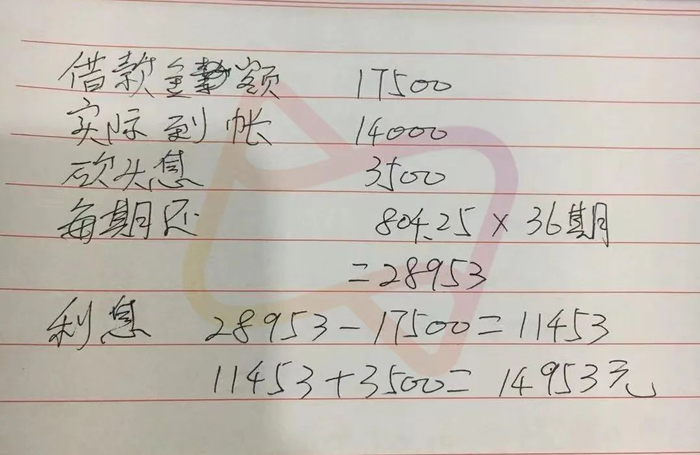 借款金额 17500
实际到帐 14000
砍头息 3500
每期还 804.25 × 36期
=28953
利息 28953-17500=11453
11453+3500=14953元